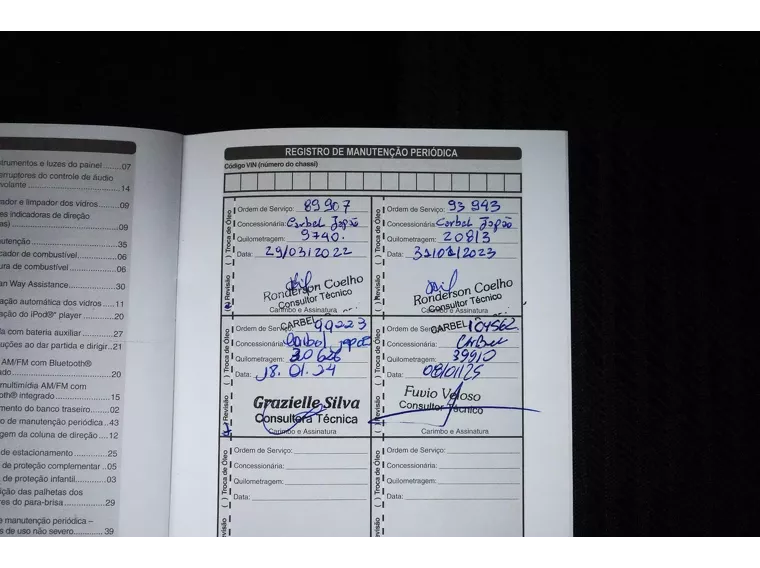 strumentos e luzes do painel ........07
erruptores do controle de áudio
volante ........14
ador e limpador dos vidros ........09
es indicadoras de direção
as) ........09
nutenção ........35
cador de combustível ........06
ura de combustível ........06
an Way Assistance ........30
ação automática dos vidros ....11
ação do iPod® player ........20
da com bateria auxiliar ........27
uções ao dar partida e dirigir..21
AM/FM com Bluetooth®
ado ........20
multimídia AM/FM com
oth® integrado ........15
mento do banco traseiro ........02
o de manutenção periódica ..43
agem da coluna de direção ....12
de estacionamento ........25
de proteção complementar ..05
de proteção infantil ........03
ição das palhetas dos
ores do para-brisa ........29
e manutenção periódica –
s de uso não severo ........39
REGISTRO DE MANUTENÇÃO PERIÓDICA
Código VIN (número do chassi)
( ) Revisão ( ) Troca de Óleo
Ordem de Serviço: 89907
Concessionária: Carbel Japão
Quilometragem: 9740.
Data: 29/03/2022
Ronderson Coelho
Consultor Técnico
Carimbo e Assinatura
( ) Revisão ( ) Troca de Óleo
Ordem de Serviço: 93943
Concessionária: Carbel Japão
Quilometragem: 20813
Data: 31/01/2023
Ronderson Coelho
Consultor Técnico
Carimbo e Assinatura
( ) Revisão ( ) Troca de Óleo
Ordem de Serviço: 99223
CARBEL
Concessionária: Carbel Japão
Quilometragem: 30626
Data: 18.01.24
Grazielle Silva
Consultora Técnica
Carimbo e Assinatura
( ) Revisão ( ) Troca de Óleo
Ordem de Serviço: 104562
CARBEL
Concessionária: CARBEL
Quilometragem: 39910
Data: 08/01/25
Fuvio Veloso
Consultor Técnico
Carimbo e Assinatura
Revisão ( ) Troca de Óleo
Ordem de Serviço:
Concessionária:
Quilometragem:
Data:
Revisão ( ) Troca de Óleo
Ordem de Serviço:
Concessionária:
Quilometragem:
Data: